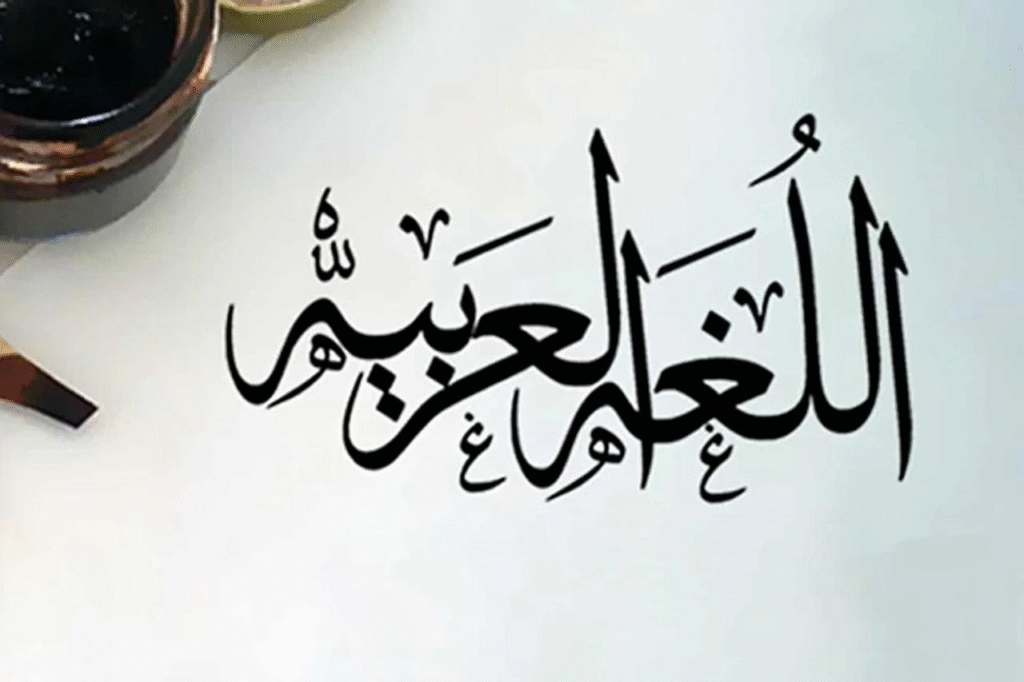 اللُغَه العربيّه